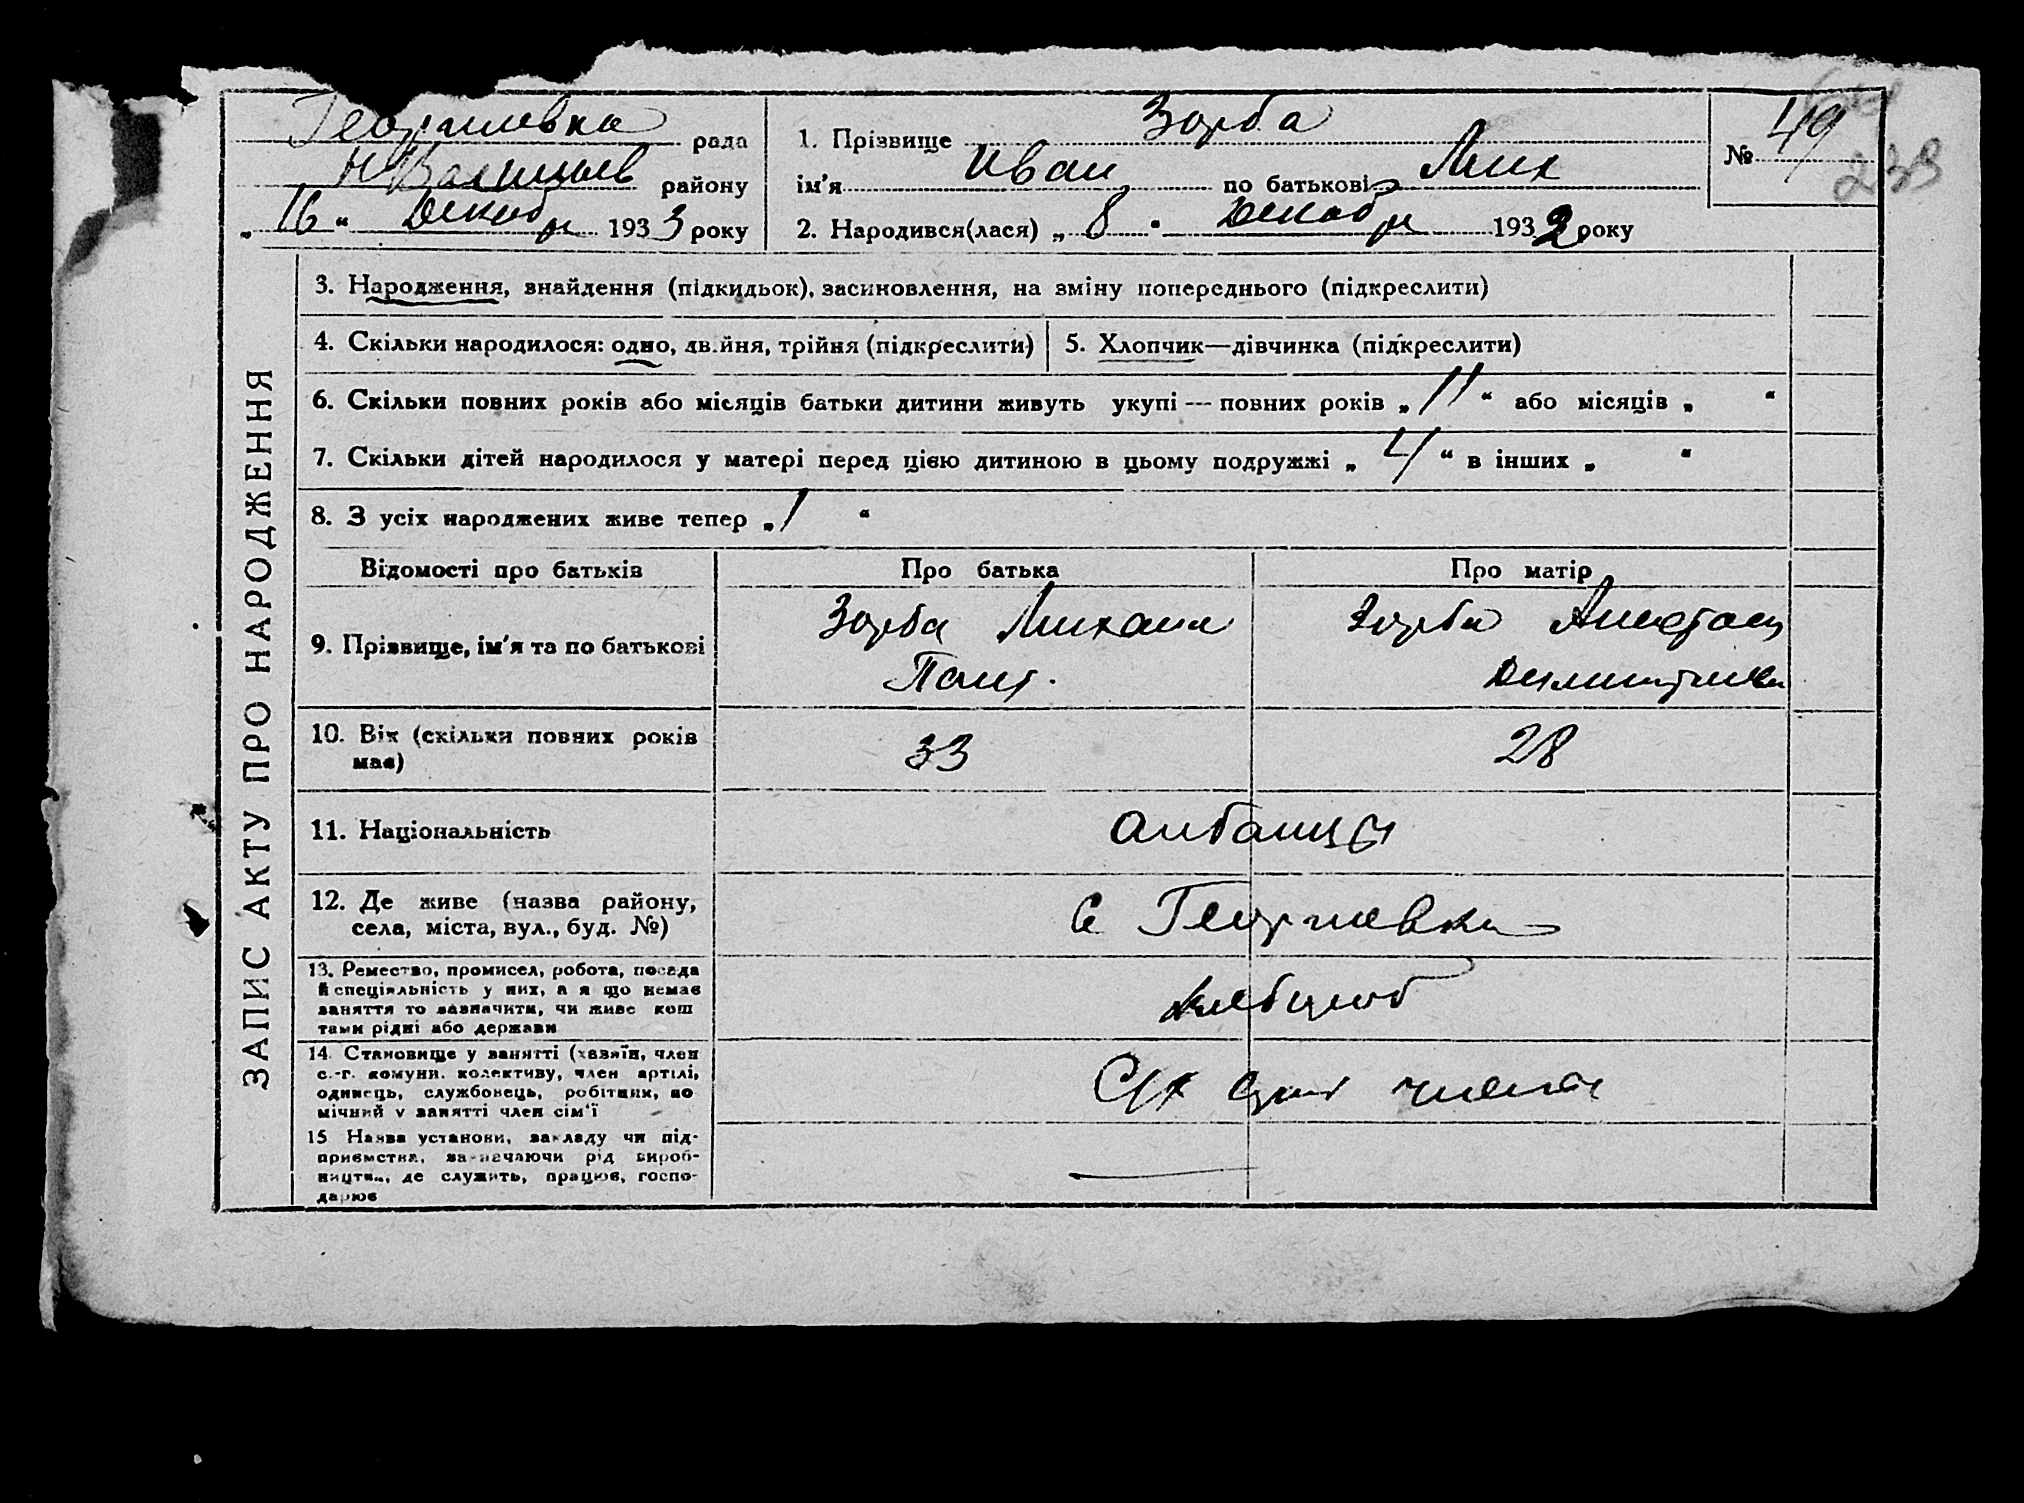 Георгиевка рада
района
„ 16 “ Декабр 1933 року
1. Прізвище Зорба
ім'я Иван по батькові Мих
2. Народився(лася) „ 8 “ Декабр 1932 року
№ 49
238
ЗАПИС АКТУ ПРО НАРОДЖЕННЯ
3. Народження, внайдення (підкидьок), засиновлення, на зміну попереднього (підкреслити)
4. Скільки народилося: одно, двійня, трійня (підкреслити)
5. Хлопчик—дівчинка (підкреслити)
6. Скільки повних років або місяців батьки дитини живуть укупі — повних років „ 11 “ або місяців „ “
7. Скільки дітей народилося у матері перед цією дитиною в цьому подружжі „ 4 “ в інших „ “
8. З усіх народжених живе тепер „ 1 “
Відомості про батьків
Про батька
Про матір
9. Прізвище, ім'я та по батькові
Зорба Михаил
Пант.
Зорба Анастас
10. Вік (скільки повних років
має)
33
28
11. Національність
Албанцы
12. Де живе (назва району,
села, міста, вул., буд. №)
с Георгиевка
13. Ремество, промисел, робота, посада
й спеціяльність у них, а якщо немає
заняття то зазначити, чи живе кош
тами рідні або держави
Хлебороб
14. Становище у занятті (хазяїн, член
с.-г. комуни. колективу, член артілі,
одинець, службовець, робітник, по
мічний у занятті член сім'ї
С/х член
15 Назва установи, закладу чи під-
приємства, зазначаючи рід вироб-
ництва, де служить, працює, госпо-
дарює